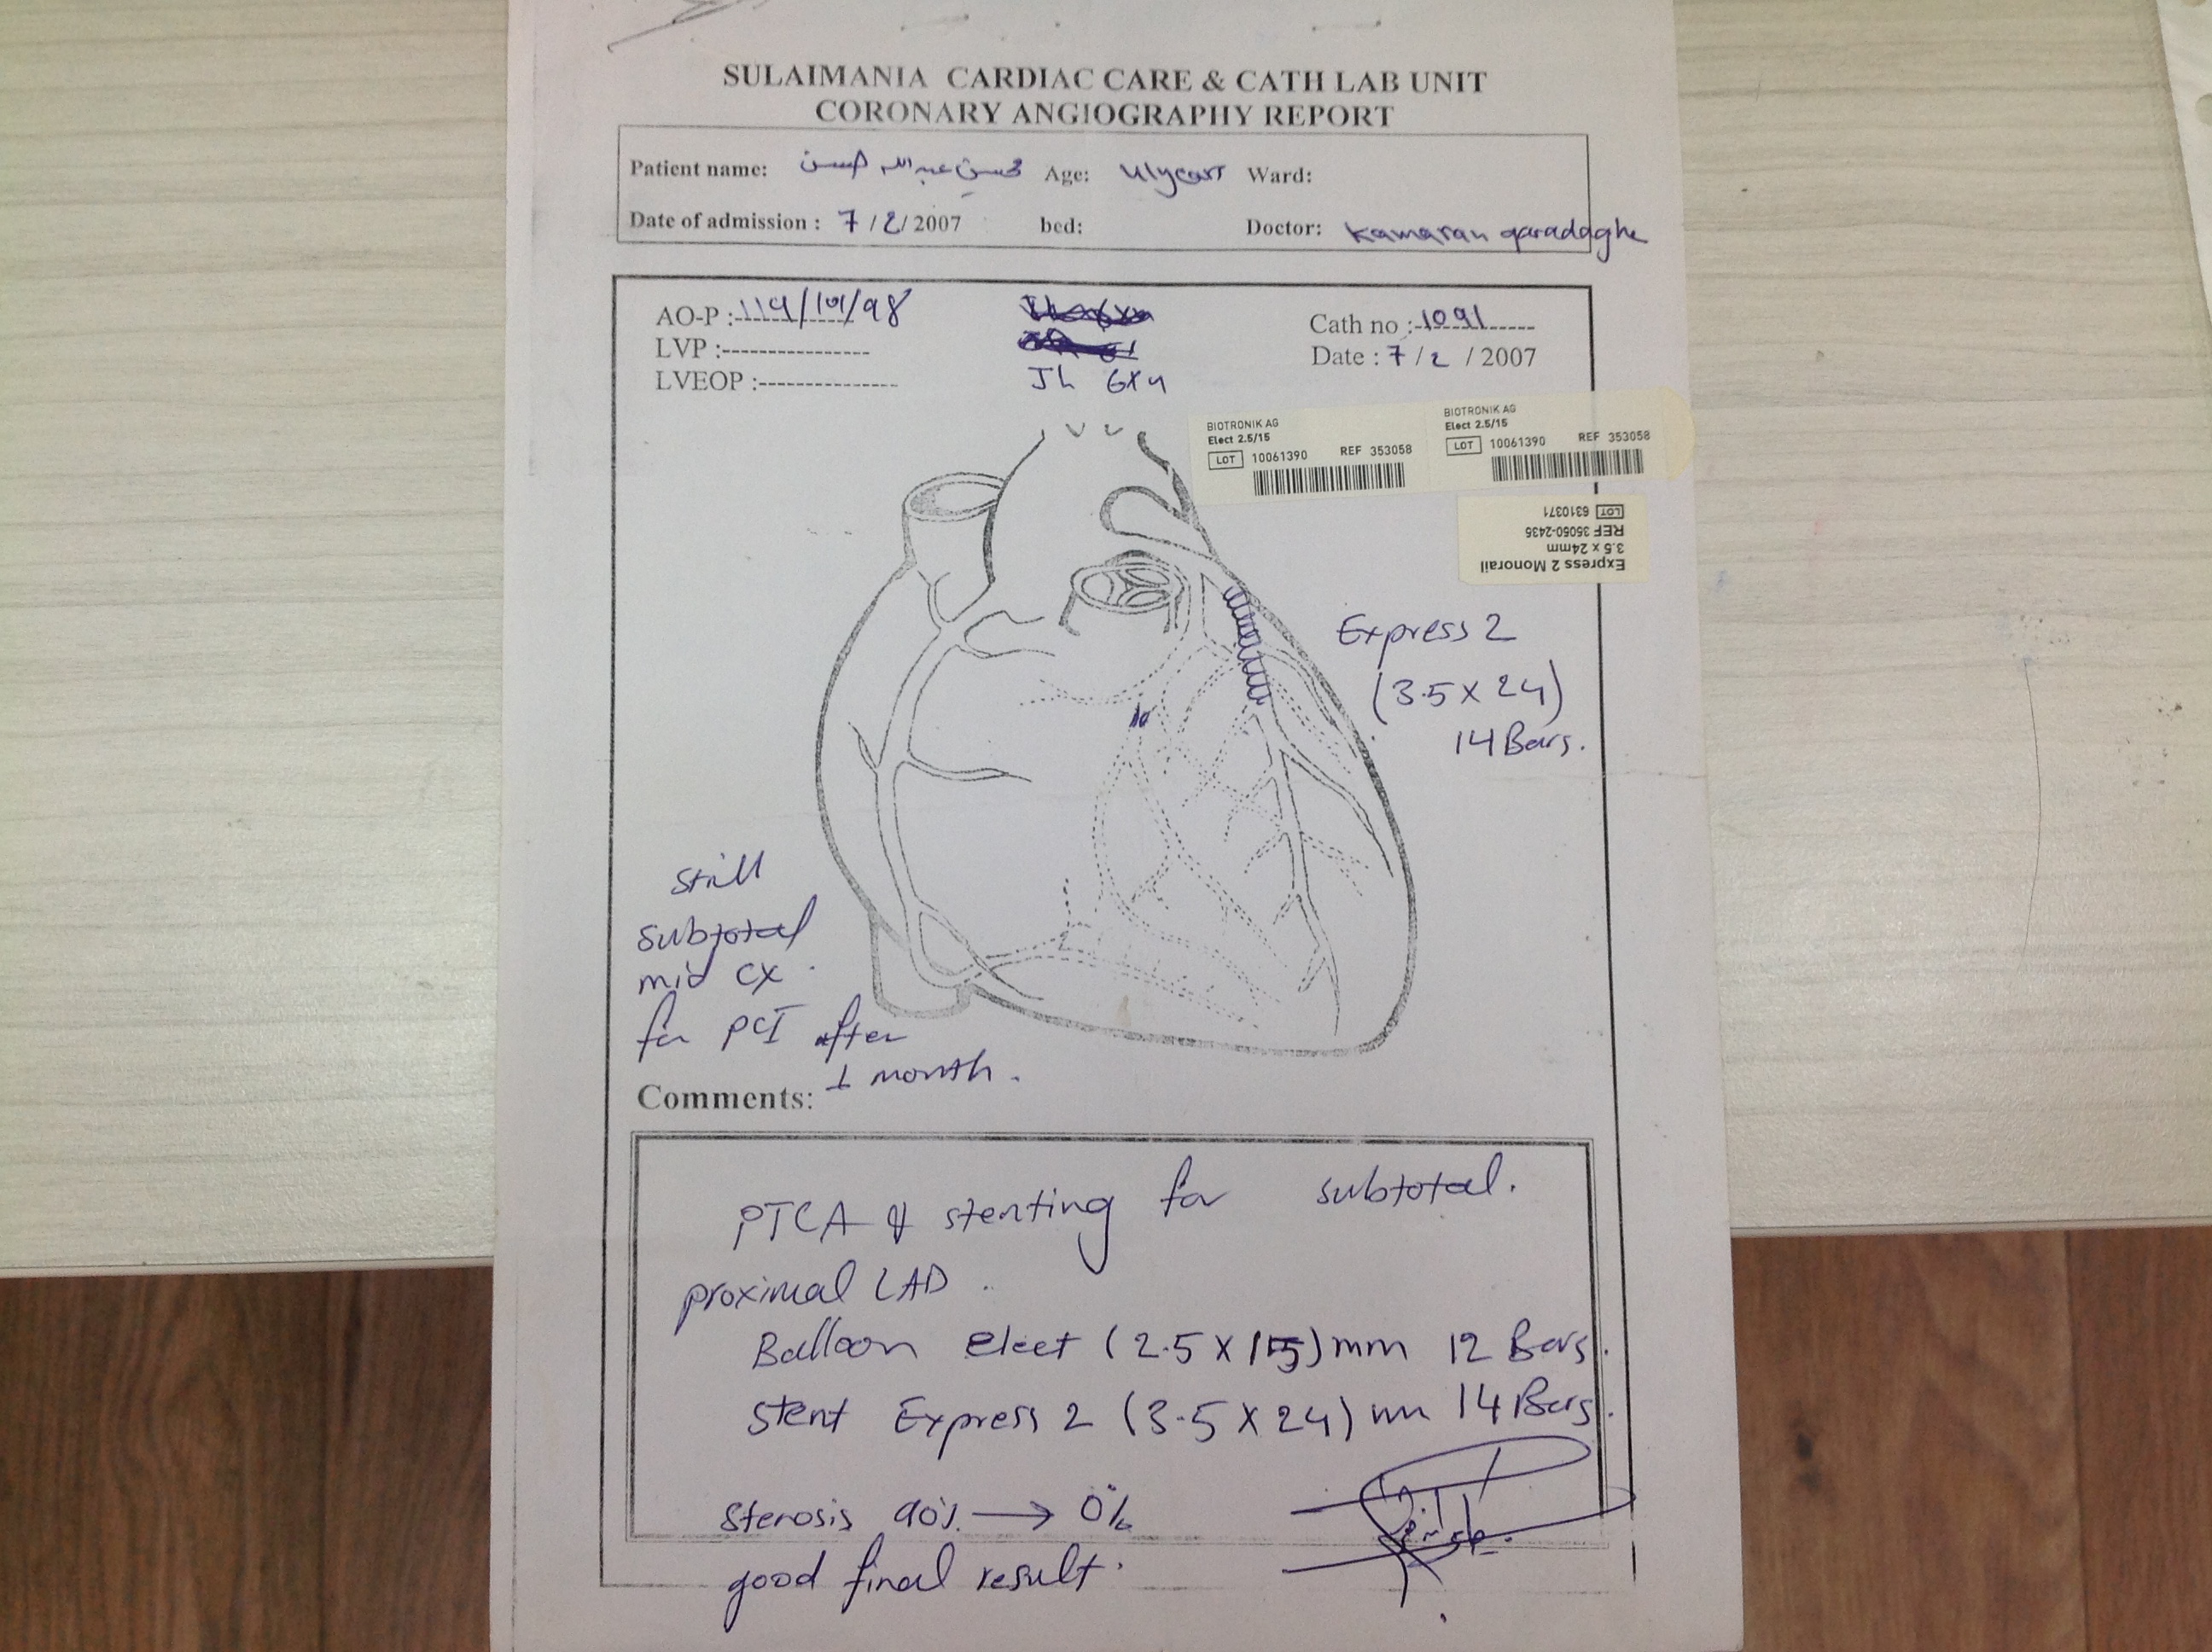 SULAIMANIA CARDIAC CARE & CATH LAB UNIT
CORONARY ANGIOGRAPHY REPORT
Patient name: محسن عبدالله حسن Age: Ward:
Date of admission : 7 / 2 / 2007 bed: Doctor: Kamaran qaradaghe
AO-P : 114/101/98
LVP :
LVEOP :
JL 6x4
Cath no : 1091
Date : 7 / 2 / 2007
BIOTRONIK AG
Elect 2.5/15
LOT 10061390 REF 353058
BIOTRONIK AG
Elect 2.5/15
LOT 10061390 REF 353058
Express 2 Monorail
3.5 x 24mm
REF 35050-2435
LOT 6310371
Express 2
(3.5 x 24)
14 Bars.
still
subtotal
mid CX.
for PCI after
1 month.
Comments:
PTCA & stenting for subtotal.
proximal LAD.
Balloon elect (2.5 x 15) mm 12 Bars.
stent Express 2 (3.5 x 24) mm 14 Bars.
Stenosis 90% → 0%
good final result.